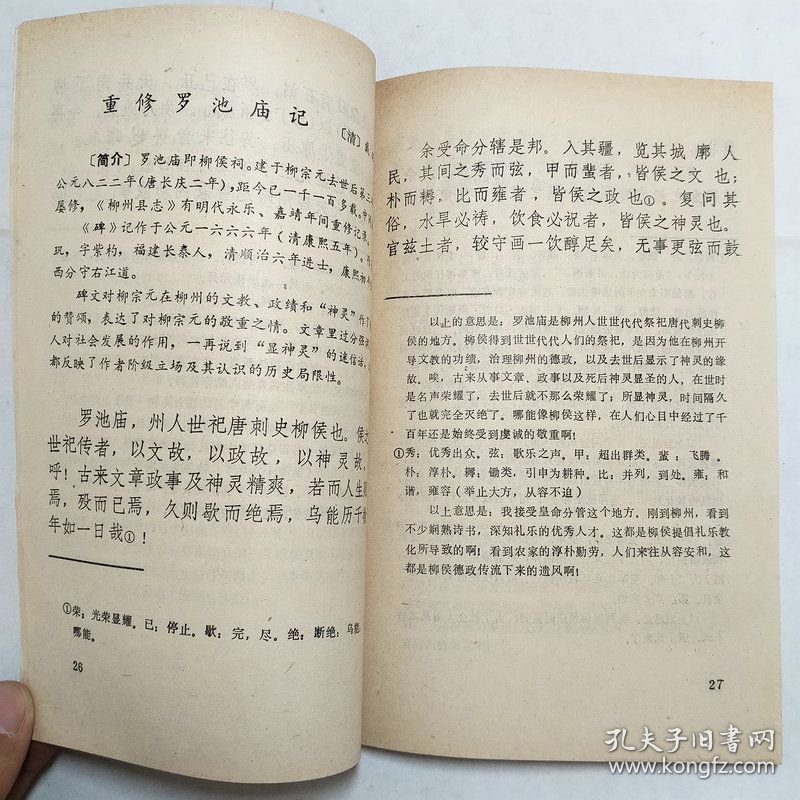 重修罗池庙记
〔清〕
〔简介〕罗池庙即柳侯祠。建于柳宗元去世后第三
公元八二二年(唐长庆二年),距今已一千一百多载。
屡修,《柳州县志》有明代永乐、嘉靖年间重修记录。
《碑》记作于公元一六六六年(清康熙五年)。
玑,字紫杓,福建长泰人,清顺治六年进士,康熙初
西分守右江道。
碑文对柳宗元在柳州的文教、政绩和“神灵”作了
的赞颂,表达了对柳宗元的敬重之情。文章里过分强
人对社会发展的作用,一再说到“显神灵”的迷信话,
都反映了作者阶级立场及其认识的历史局限性。
罗池庙,州人世祀唐刺史柳侯也。侯之
世祀传者,以文故,以政故,以神灵故,
呼!古来文章政事及神灵精爽,若而人生
焉,殁而已焉,久则歇而绝焉,乌能历千
年如一日哉①!
①荣:光荣显耀。已:停止。歇:完,尽。绝:断绝。乌能:
哪能。
26
余受命分辖是邦。入其疆,览其城廓人
民,其间之秀而弦,甲而蜚者,皆侯之文也;
朴而耨,比而雍者,皆侯之政也①。复问其
俗,水旱必祷,饮食必祝者,皆侯之神灵也。
官兹土者,较守画一饮醇足矣,无事更弦而鼓
以上的意思是:罗池庙是柳州人世世代代祭祀唐代刺史柳
侯的地方。柳侯得到世世代代人们的祭祀,是因为他在柳州开
导文教的功绩,治理柳州的德政,以及去世后显示了神灵的缘
故。唉,古来从事文章、政事以及死后神灵显圣的人,在世时
是名声荣耀了,去世后就不那么荣耀了;所显神灵,时间隔久
了也就完全灭绝了。哪能像柳侯这样,在人们心目中经过了千
百年还是始终受到虔诚的敬重啊!
①秀:优秀出众。弦:歌乐之声。甲:超出群类。蜚:飞腾。
朴:淳朴。耨:锄类,引申为耕种。比:并列,到处。雍:和
谐,雍容(举止大方,从容不迫)
以上意思是:我接受皇命分管这个地方。刚到柳州,看到
不少娴熟诗书,深知礼乐的优秀人才。这都是柳侯提倡礼乐教
化所导致的啊!看到农家的淳朴勤劳,人们来往从容安和,这
都是柳侯德政传流下来的遗风啊!
27
孔夫子旧书网
www.kongfz.com